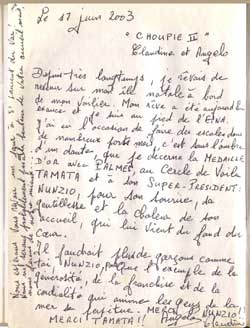 Le 17 juin 2003
" CHOUPIE III "
Claudine et Angelo
Depuis très longtemps, je rêvais de
revenir sur mon île natale à bord
de mon voilier. Mon rêve a été aujourd'hui
exaucé et je suis au pied de l'ETNA.
J'ai eu l'occasion de faire des escales dans
de nombreux ports mais, c'est sans l'ombre
d'un doute que je decerne la MEDAILLE
D'OR avec PALMES, au Cercle de Voile
TAMATA et à son SUPER-PRESIDENT:
NUNZIO, pour son sourire, sa
gentillesse et la chaleur de son
accueil qui lui vient du fond du
cœur.
Il faudrait plus de garçons comme
toi NUNZIO, pour que l'exemple de la
générosité, de la franchise et de la
cordialité qui anime les gens de la
mer se perpétue. MERCI NUNZIO!
MERCI TAMATA!! Angelo
Claudine